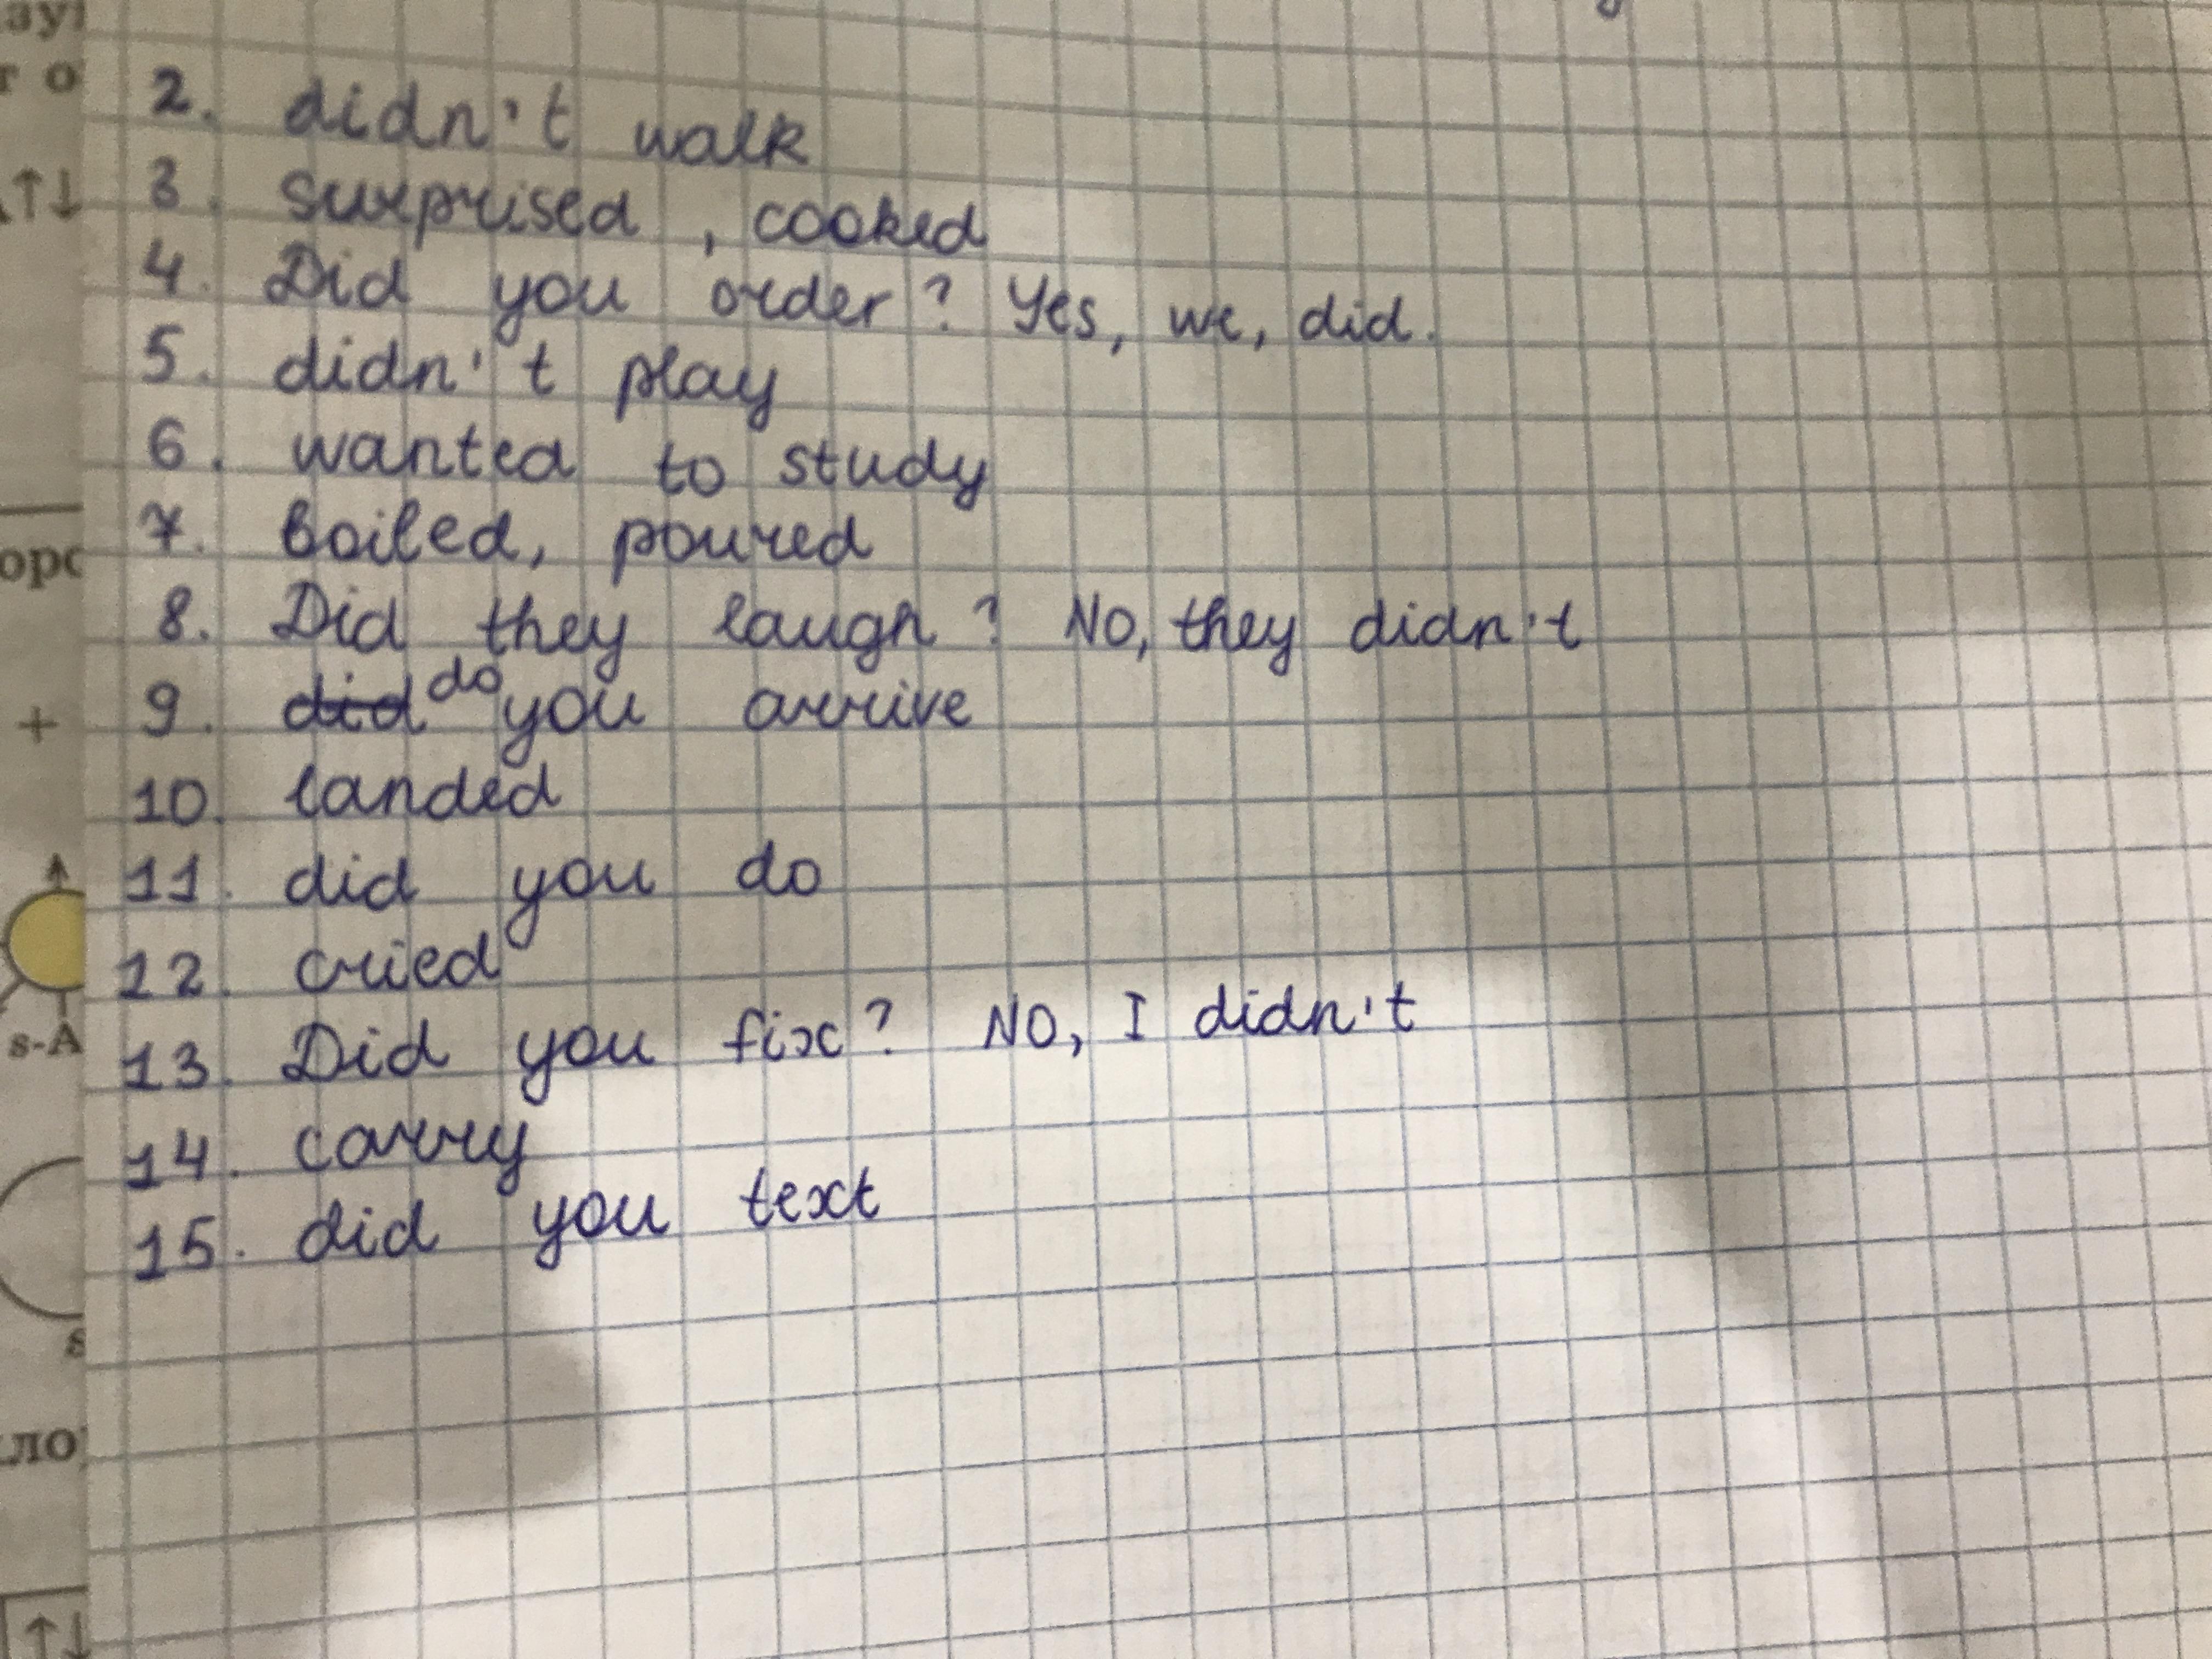 2. didn't walk
3. surprised, cooked
4. Did you order? Yes, we, did.
5. didn't play
6. wanted to study
7. boiled, poured
8. Did they laugh? No, they didn't
9. did do you arrive
10. landed
11. did you do
12. cried
13. Did you fix? No, I didn't
14. carry
15. did you text
ау
г о
↑↓
оро
+
s-A
s
ло
↑↓